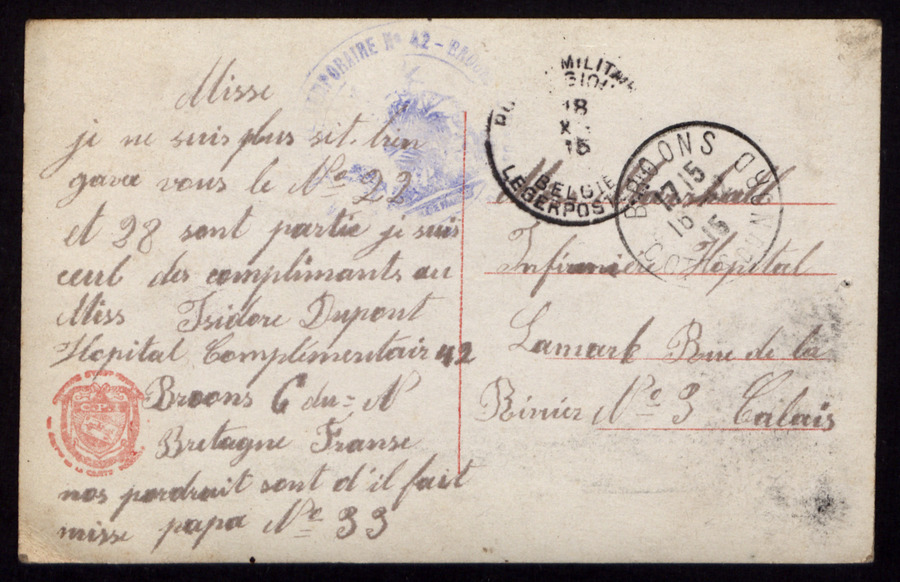 Misse
je ne suis plus sit. bien
gava vous le No 22
et 28 sont partie je suis
ceul des complimants au
Miss Isidore Dupont
Hopital Complémentair 42
Broons C du = N
Bretagne Franse
nos pordrait sont d'il fait
misse papa No 33
PORAIRE No 42 - BROO
MILITAI
18
X
15
BELGIE
LEGERPOST
BROONS
17 15
16
15
C. DU NORD
Infirmier Hopital
Lamark Rue de la
Rivier No 3 Calais